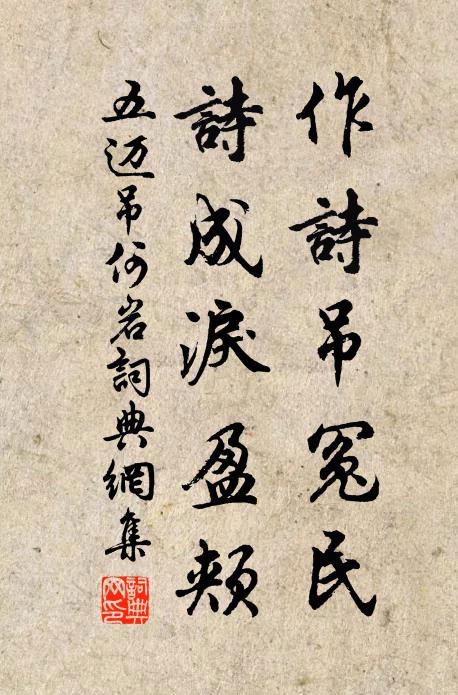 作詩吊冤民
詩成淚盈頰
五迈吊何岩詞典網集
詞典網印